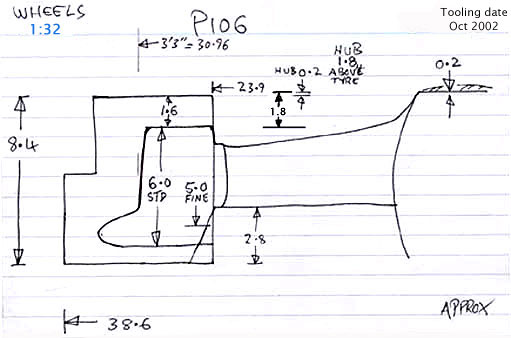 WHEELS
1:32
P106
Tooling date
Oct 2002
3'3" = 30.96
HUB
1.8
ABOVE
TYRE
HUB 0.2
0.2
23.9
1.6
1.8
8.4
6.0
STD
5.0
FINE
2.8
38.6
APPROX